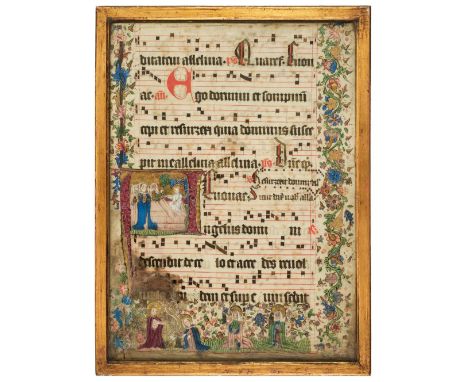 ditatem alleluia. ps Quare Euou
ae. an. Ego dormiui et sompnum
cepi et resurrexi quia dominus susce
pit me alleluia alleluia. ps
Resurrexit dominus
Euouae.
Angelus domi ni
descendit de ce lo et acce dens reuol
dem et sup e um sedit